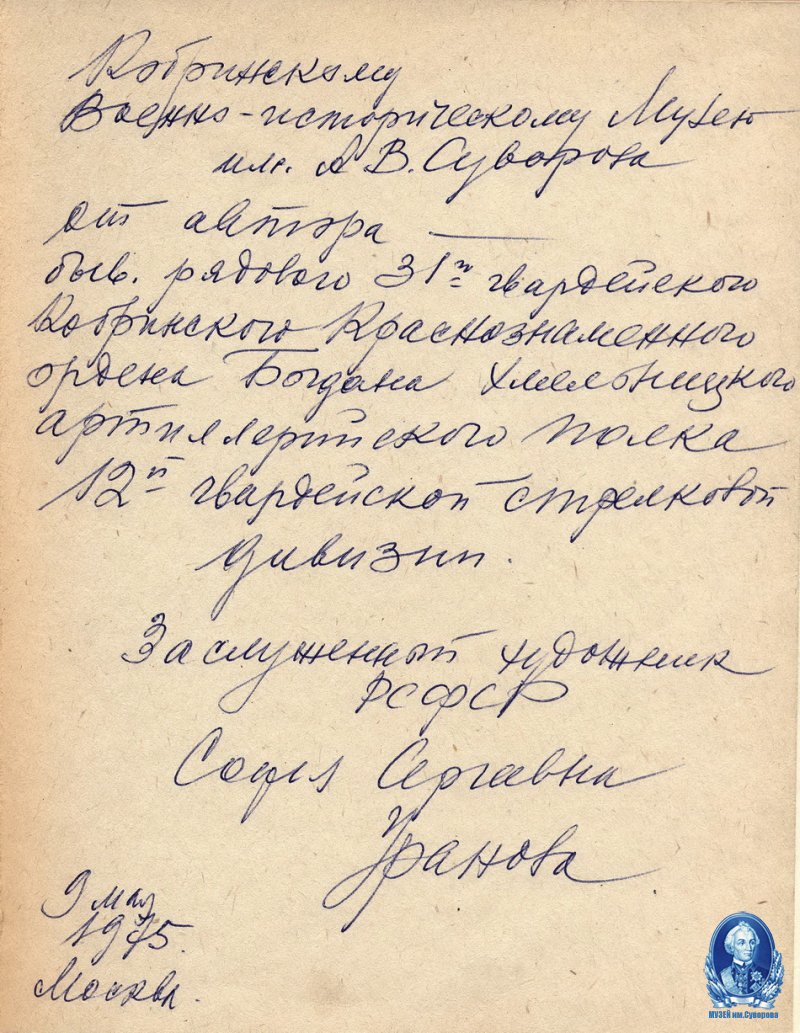 Кобринскому
Военно-историческому Музею
им. А В. Суворова
от автора —
быв. рядового 31го гвардейского
Кобринского Краснознаменного
ордена Богдана Хмельницкого
артиллерийского полка
12й гвардейской стрелковой
дивизии.
Заслуженный художник
РСФСР
София Сергеевна
Уранова
9 мая
1975.
Москва.
МУЗЕЙ им.Суворова